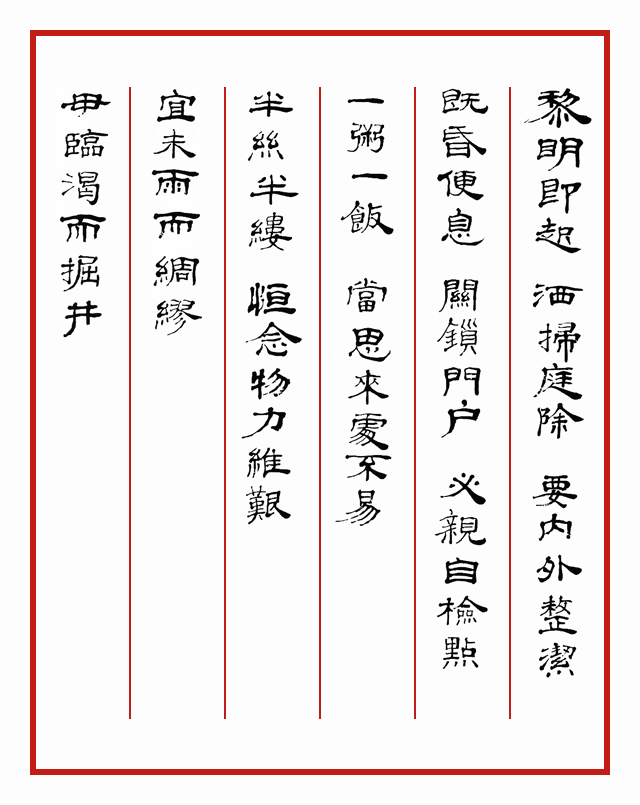 黎明即起 洒掃庭除 要内外整潔
既昏便息 關鎖門户 必親自檢點
一粥一飯 當思來處不易
半絲半縷 恒念物力維艱
宜未雨而綢繆
毋臨渴而掘井